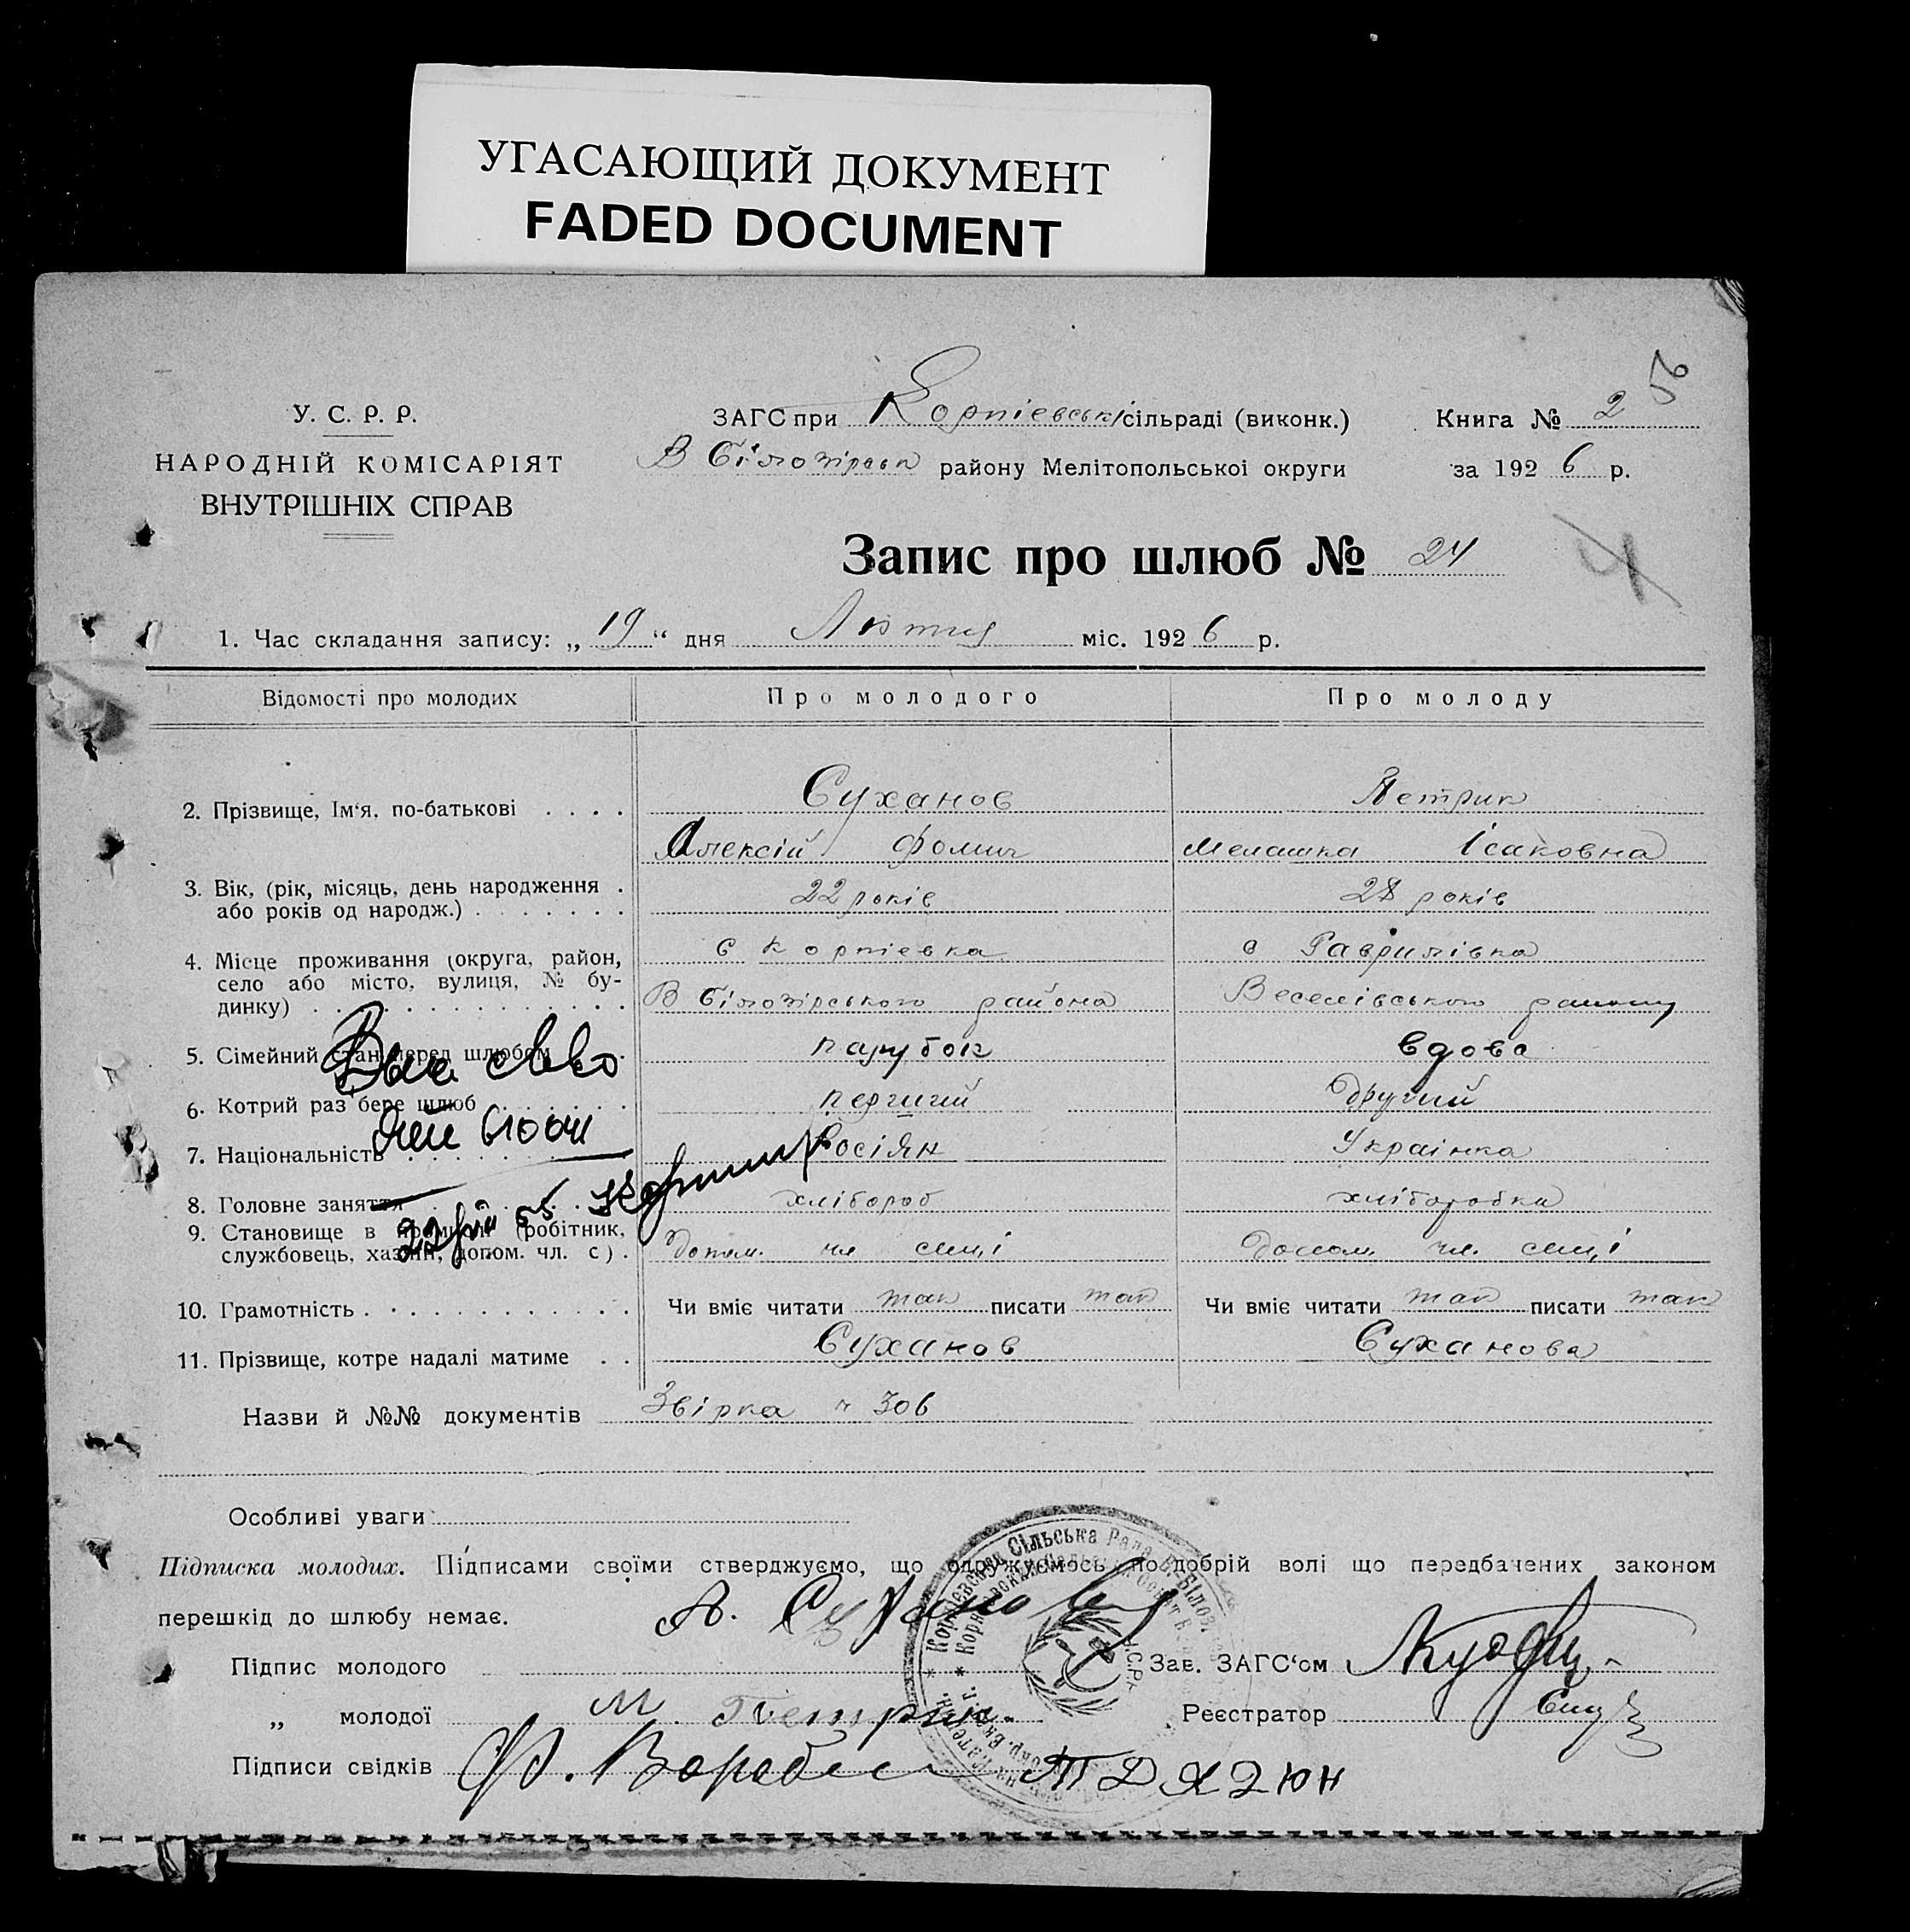 УГАСАЮЩИЙ ДОКУМЕНТ
FADED DOCUMENT
56
У. С. Р. Р.
НАРОДНІЙ КОМІСАРІЯТ
ВНУТРІШНІХ СПРАВ
ЗАГС при Корніевській сільраді (виконк.)
Книга № 2
В Білозірськ району Мелітопольськоі округи
за 1926 р.
Запис про шлюб № 24
4
1. Час складання запису: „19“ дня Лютня міс. 1926 р.
Відомості про молодих
Про молодого
Про молоду
2. Прізвище, Ім'я, по-батькові . . . .
Суханов
Петрик
Алексій Фомич
Мелашка Ісаковна
3. Вік, (рік, місяць, день народження .
або років од народж.) . . . . . . .
22 років
28 років
4. Місце проживання (округа, район,
село або місто, вулиця, № бу-
динку) . . . . . . . . . . . . .
с Корніевка
с Гаврилівка
В Білозірського района
Веселівського району
5. Сімейний стан перед шлюбом
парубок
вдова
6. Котрий раз бере шлюб . . . . . .
первий
Другий
7. Національність . . . . . . .
Росіян
Украінка
8. Головне заняття
хлібороб
хліборобка
9. Становище в промислі (робітник,
службовець, хазяїн, допом. чл. с) .
Допом. чл семі
Допом. чл. семі
10. Грамотність . . . . . . . . . . . .
Чи вміє читати так писати так
Чи вміє читати так писати так
11. Прізвище, котре надалі матиме . .
Суханов
Суханова
Назви й №№ документів Звірка ч 306
Особливі уваги
Підписка молодих. Підписами своїми стверджуємо, що одружуємось по добрій волі що передбачених законом
перешкід до шлюбу немає.
А. Суханов
Підпис молодого
Зав. ЗАГС‘ом
„ молодої М. Петрик.
Реєстратор
Підписи свідків Ф. Воробев